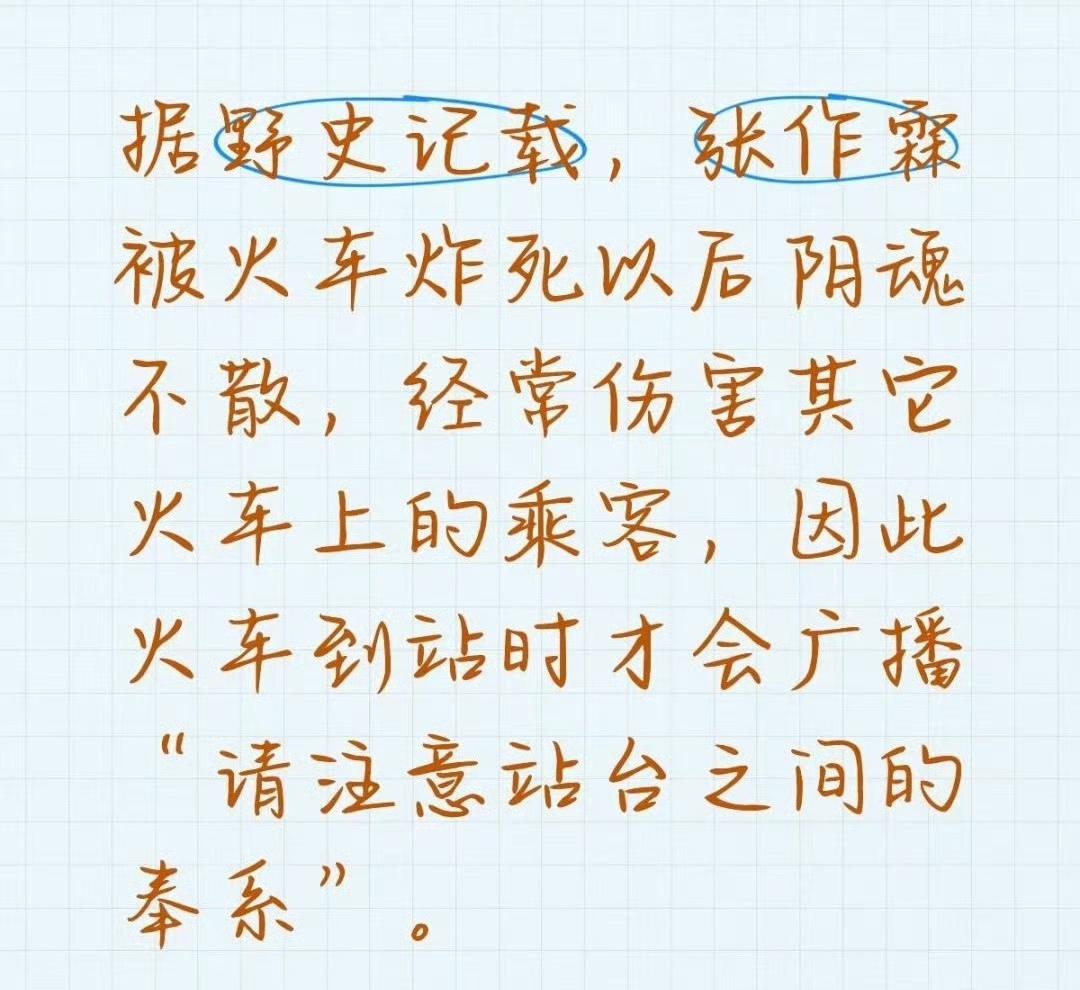 据野史记载，张作霖
被火车炸死以后阴魂
不散，经常伤害其它
火车上的乘客，因此
火车到站时才会广播
“请注意站台之间的
奉系”。